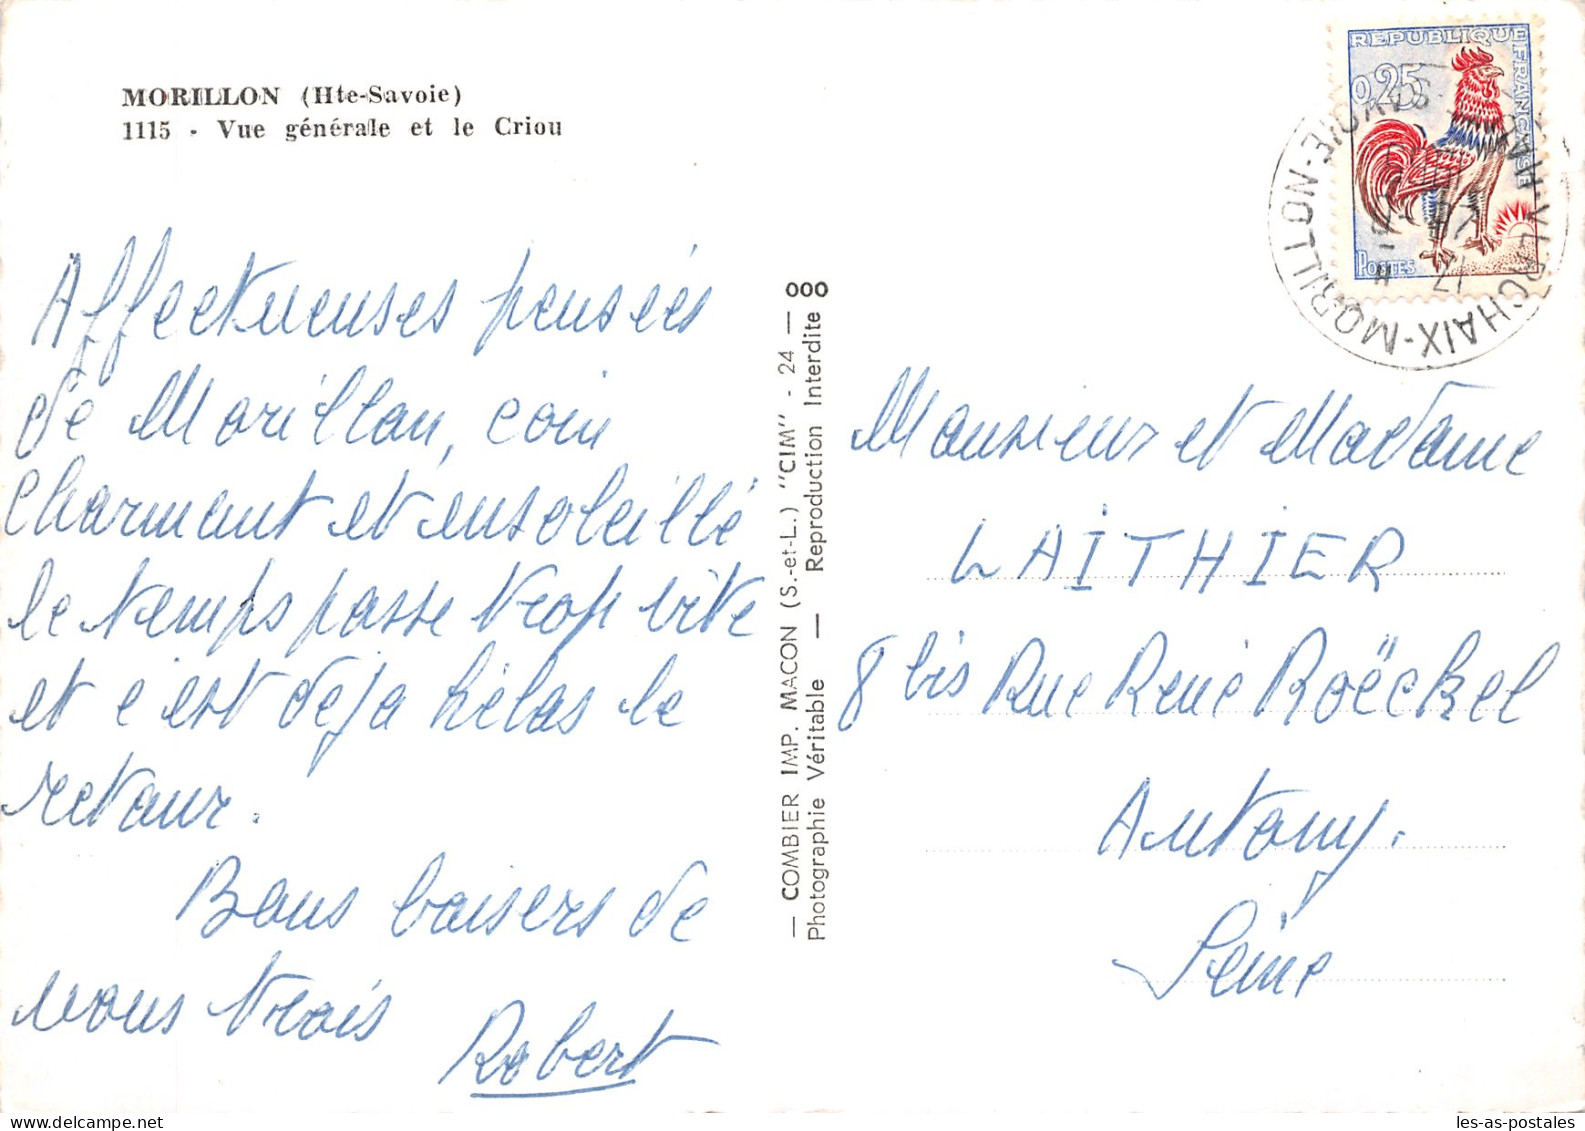 MORILLON (Hte-Savoie)
1115 - Vue générale et le Criou
REPUBLIQUE
FRANÇAISE
0,25
POSTES
MORILLON
Affectueuses pensées
de Morillon, coin
charmant et ensoleillé
le temps passe trop vite
et c'est déja hélas le
retour.
Bons baisers de
nous trois
Robert
— COMBIER IMP. MACON (S.-et-L.) "CIM" - 24 — 000
Photographie Véritable — Reproduction Interdite
Monsieur et Madame
LAITHIER
8 bis Rue René Roëckel
Antony.
Seine
les-as-postales